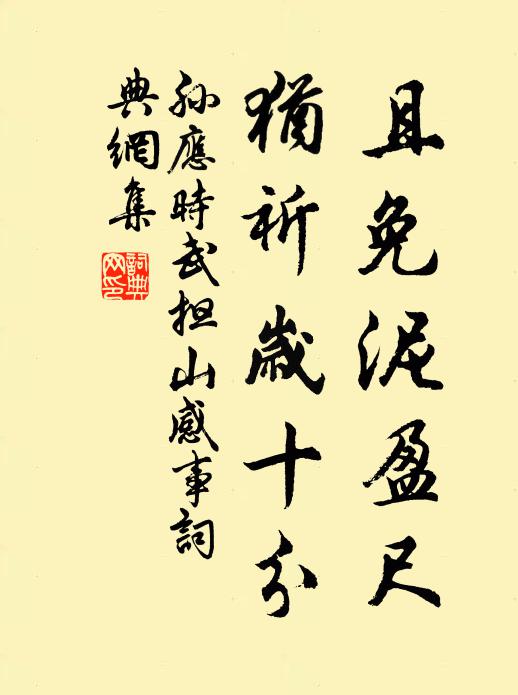 且免泥盈尺
猶祈歲十分
孫應時武担山感事詞
典網集
詞典
网印